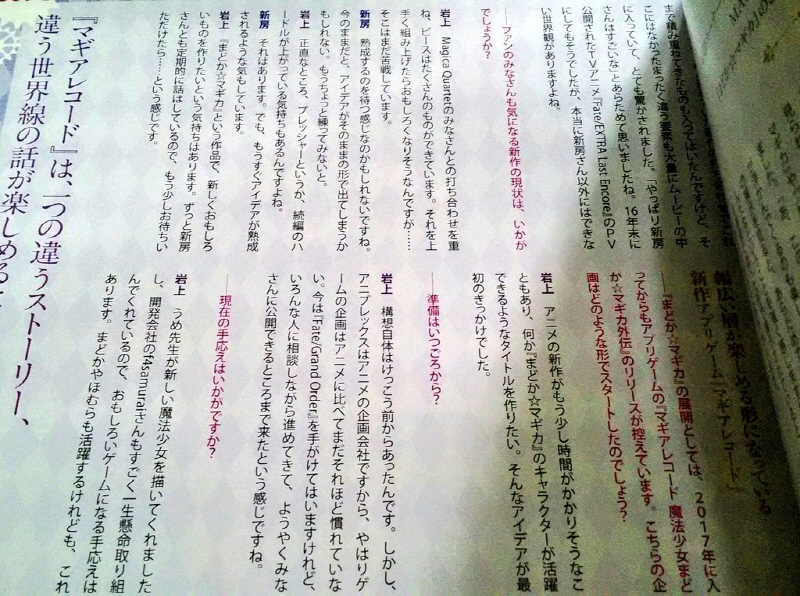 こにはなかったまったく違う要素も大量にムービーの中
に入っていて、とても驚かされました。「やっぱり新房
さんはすごいな」とあらためて思いましたね。16年末に
公開されたTVアニメ『Fate/EXTRA Last Encore』のPV
にしてもそうでしたが、本当に新房さん以外にはできな
い世界観がありますよね。
──ファンのみなさんも気になる新作の現状は、いかが
でしょうか？
岩上　Magica Quartetのみなさんとの打ち合わせを重
ね、ピースはたくさんのものができています。それを上
手く組み上げたらおもしろくなりそうなんですが……
そこはまだ苦戦しています。
新房　熟成するのを待つ感じなのかもしれないですね。
今のままだと、アイデアがそのままの形で出てしまうか
もしれない。もうちょっと練ってみないと。
岩上　正直なところ、プレッシャーというか、続編のハ
ードルが上がっている気持ちもあるんですよね。
新房　それはあります。でも、もうすぐアイデアが熟成
されるような気もしています。
岩上　『まどか☆マギカ』という作品で、新しくおもしろ
いものを作りたいという気持ちはあります。ずっと新房
さんとも定期的に話はしているので、もう少しお待ちい
ただけたら……という感じです。
『マギアレコード』は、一つの違うストーリー、
違う世界線の話が楽しめる
新作アプリゲーム『マギアレコード』
──『まどか☆マギカ』の展開としては、2017年に入
ってからもアプリゲームの『マギアレコード 魔法少女まど
か☆マギカ外伝』のリリースが控えています。こちらの企
画はどのような形でスタートしたのでしょう？
岩上　アニメの新作がもう少し時間がかかりそうなこ
ともあり、何か『まどか☆マギカ』のキャラクターが活躍
できるようなタイトルを作りたい。そんなアイデアが最
初のきっかけでした。
──準備はいつごろから？
岩上　構想自体はけっこう前からあったんです。しかし、
アニプレックスはアニメの企画会社ですから、やはりゲ
ームの企画はアニメに比べてまだそれほど慣れていな
い。今は『Fate/Grand Order』を手がけてはいますけれど、
いろんな人に相談しながら進めてきて、ようやくみな
さんに公開できるところまで来たという感じですね。
──現在の手応えはいかがですか？
岩上　うめ先生が新しい魔法少女を描いてくれました
し、開発会社のf4samuraiさんもすごく一生懸命取り組
んでくれているので、おもしろいゲームになる手応えは
あります。まどかやほむらも活躍するけれども、これ